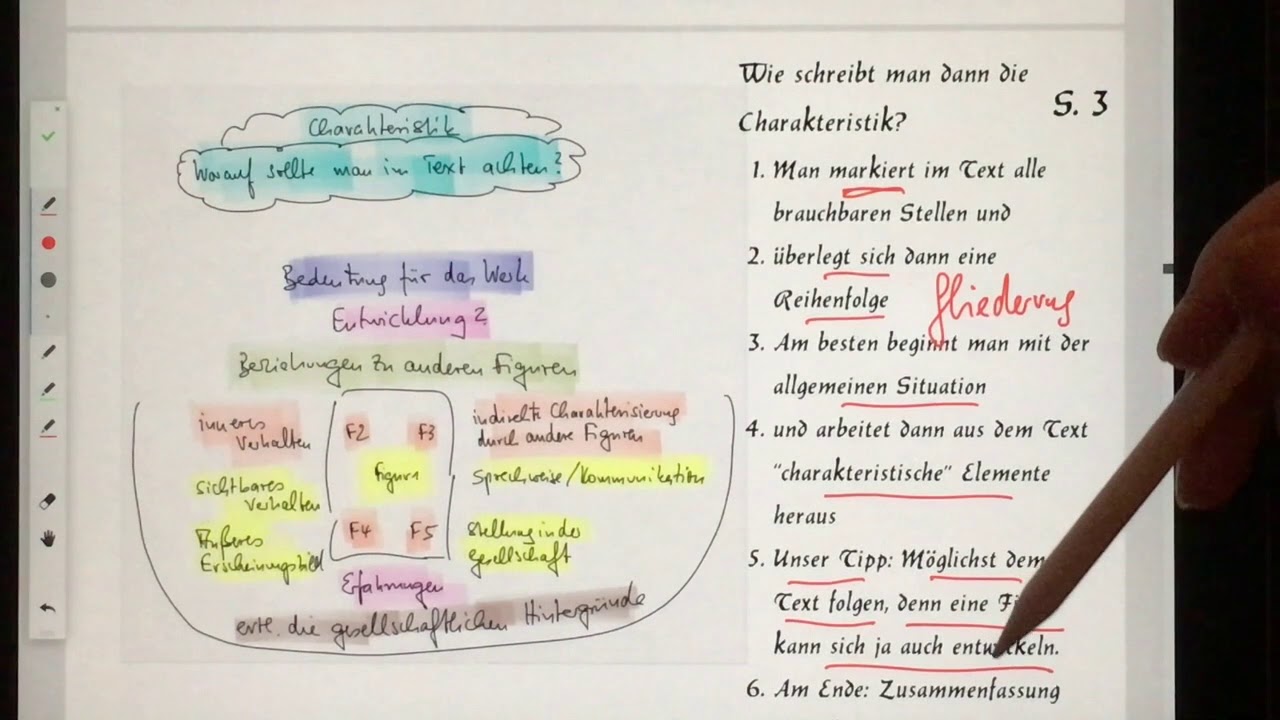 Charakteristik
Worauf sollte man im Text achten?
Bedeutung für das Werk
Entwicklung?
Beziehungen zu anderen Figuren
inneres
Verhalten
sichtbares
Verhalten
Äußeres
Erscheinungsbild
F2 F3
Figur 1
F4 F5
indirekte Charakterisierung
durch andere Figuren
Sprechweise/Kommunikation
Stellung in der
Gesellschaft
Erfahrungen
evtl. die gesellschaftlichen Hintergründe
Wie schreibt man dann die
Charakteristik?
S. 3
1. Man markiert im Text alle
brauchbaren Stellen und
2. überlegt sich dann eine
Reihenfolge
Gliederung
3. Am besten beginnt man mit der
allgemeinen Situation
4. und arbeitet dann aus dem Text
"charakteristische" Elemente
heraus
5. Unser Tipp: Möglichst dem
Text folgen, denn eine
kann sich ja auch entwickeln.
6. Am Ende: Zusammenfassung